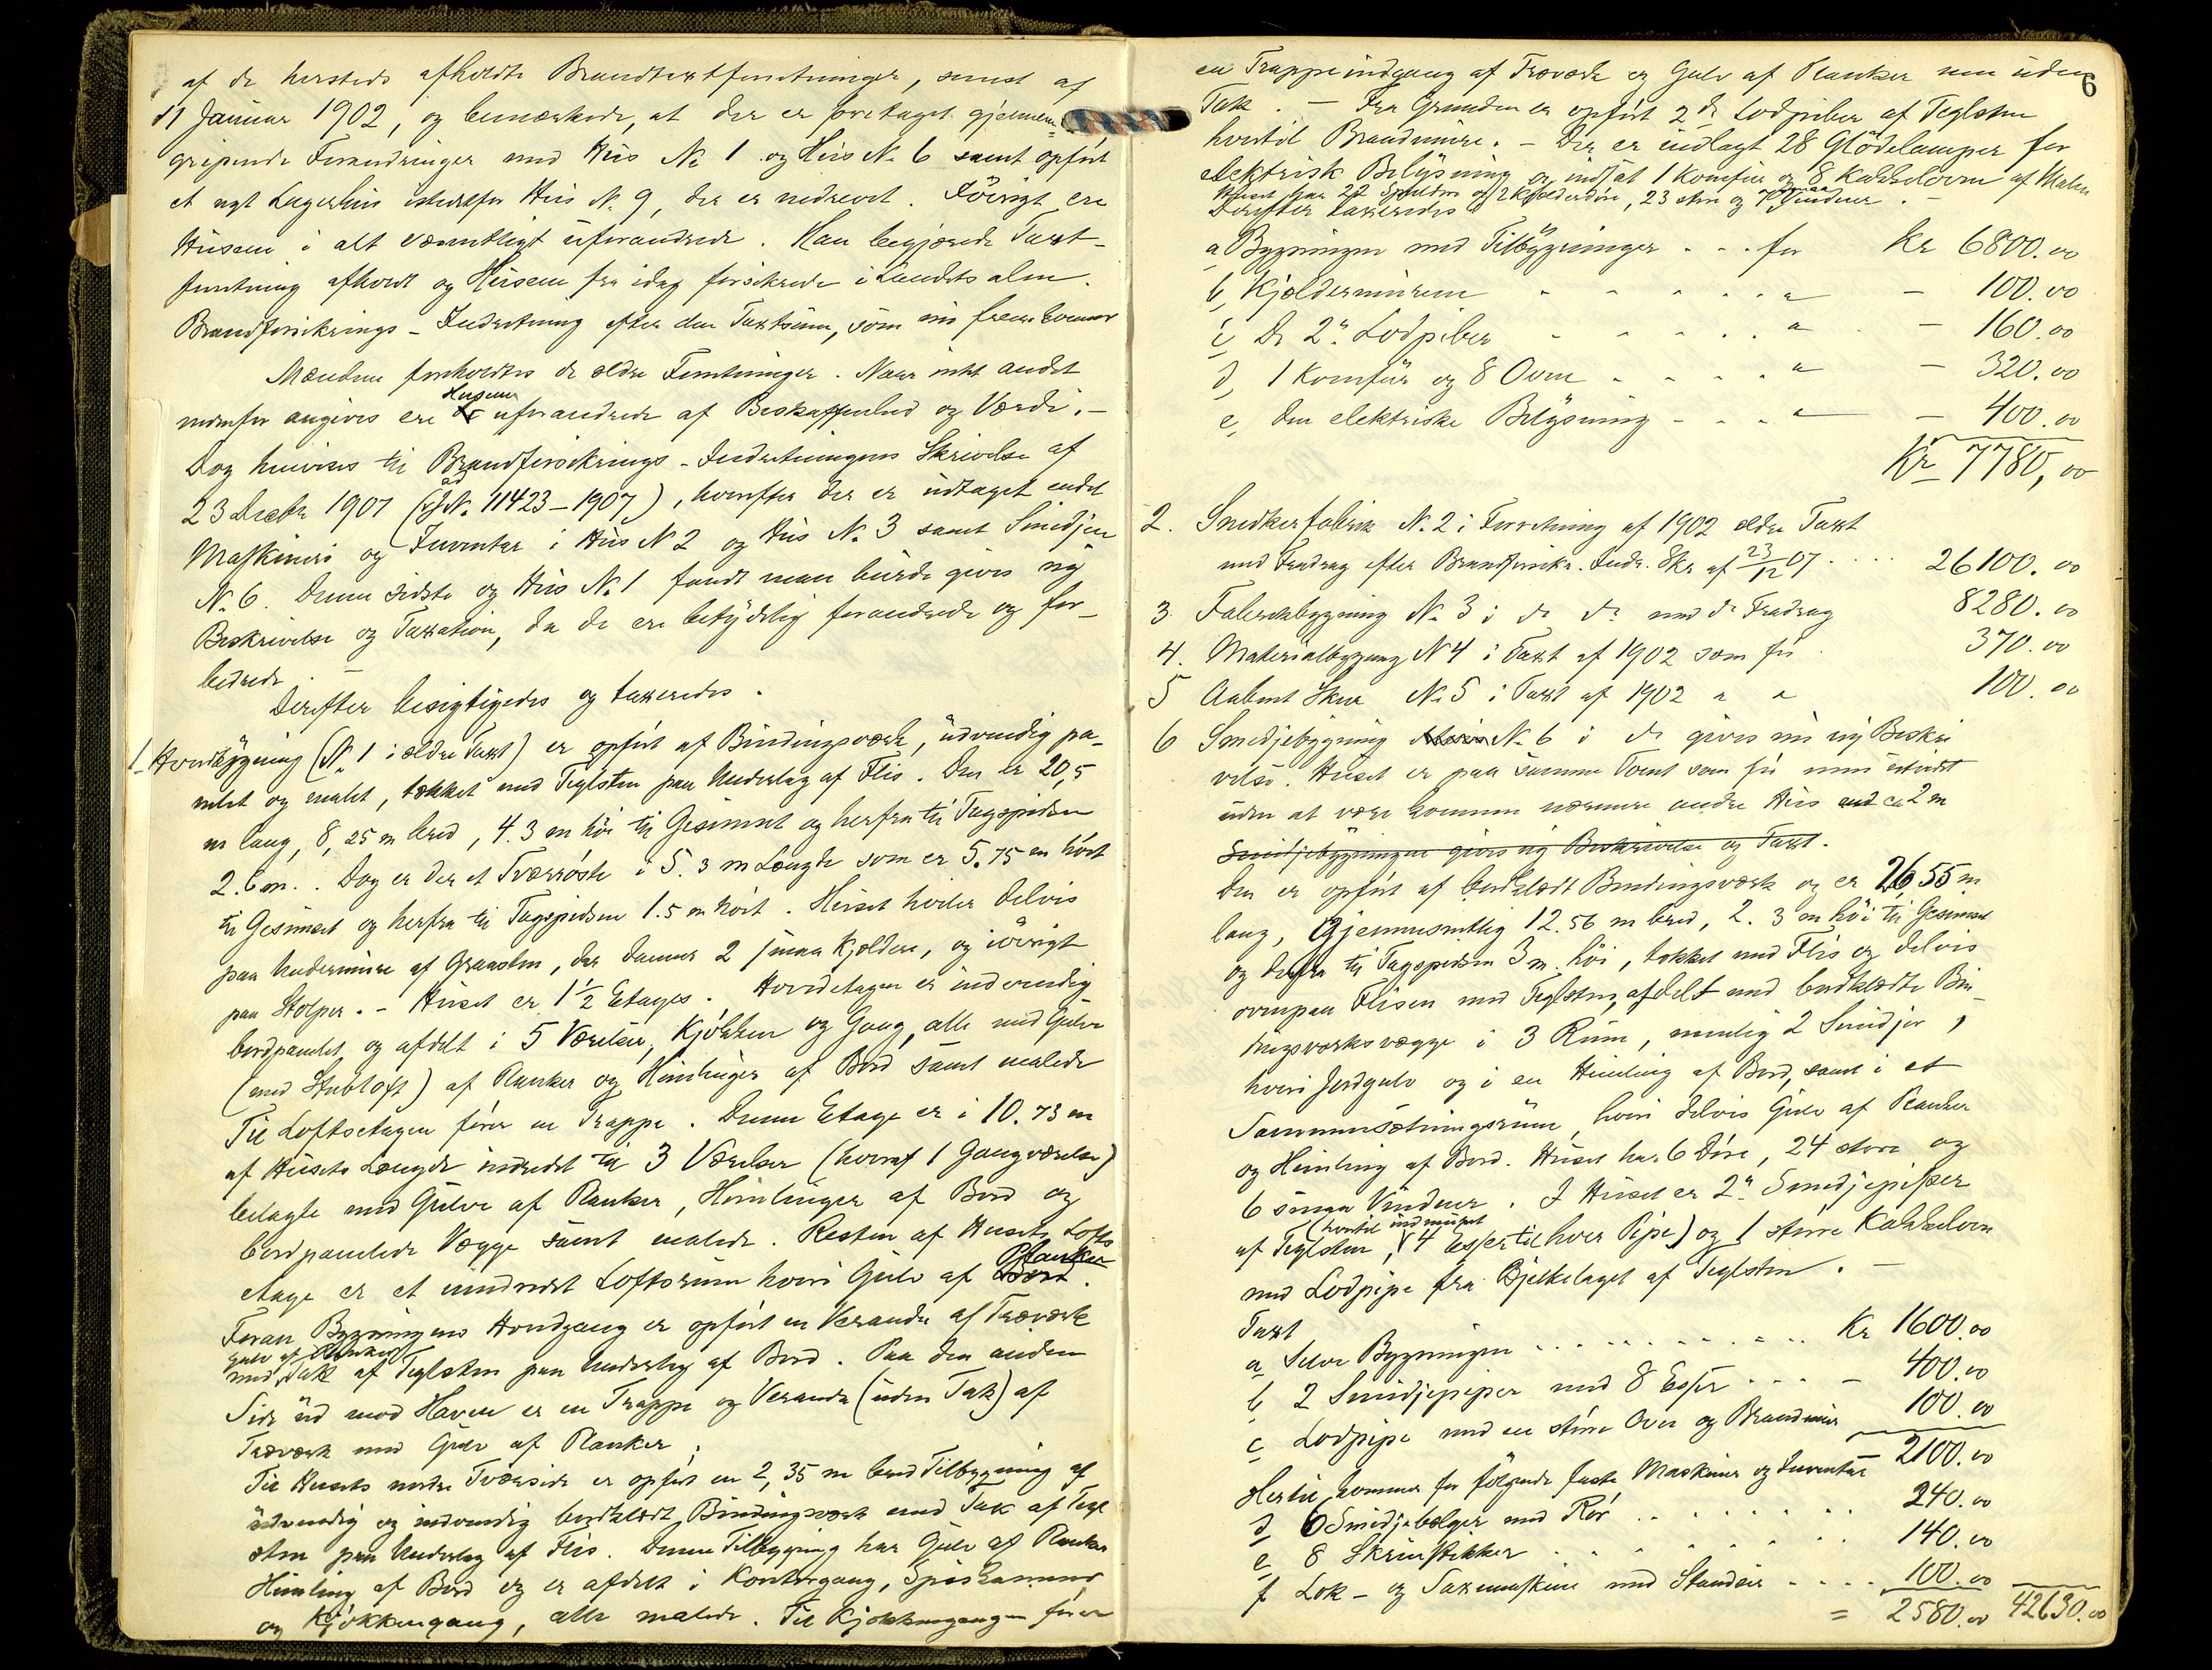 af de hersteds afholdte Brandtaxtforretninger, senest af
11 Januar 1902, og bemærkede, at der er foretaget gjennem-
gripende Forandringer med Hus No 1 og Hus No 6 samt opført
et nyt Lagerhus istedetfor Hus No 9, der er nedrevet. Iøvrigt ere
Husene i alt væsentligt uforandrede. Han begjærede Taxt-
forretning afholdt og Husene fra idag forsikrede i Landets alm.
Brandforsikrings-Indretning efter den Taxtsum, som nu fremkommer
Mændene foreholdtes de ældre Forretninger. Naar intet andet
nedenfor angives ere Husene uforandrede af Beskaffenhed og Værdi. -
Dog henvises til Brandforsikrings-Indretningens Skrivelse af
23 Decbr 1907 (Jd No. 11423-1907), hvorefter der er udtaget endel
Maskineri og Inventar i Hus No 2 og Hus No. 3 samt Smedjen
No. 6. Denne sidste og Hus No. 1 fandt man burde gives ny
Beskrivelse og Taxation, da de ere betydelig forandrede og for-
bedrede. -
Derefter besigtigedes og taxeredes.
1. Hovedbygning (No. 1 i ældre Taxt) er opført af Bindingsværk, udvendig pa-
nelet og malet, tækket med Teglsten paa Underlag af Flis. Den er 20,5
m lang, 8,25 m bred, 4.3 m høi til Gesimset og herfra til Tagspidsen
2.6 m. Dog er der et Tværrøste i 5.3 m Længde som er 5.75 m høit
til Gesimset og herfra til Tagspidsen 1.5 m høit. Huset hviler delvis
paa Undermure af Graasten, der danner 2 smaa Kjeldere, og iøvrigt
paa Stolper. - Huset er 1 1/2 Etages. Hovedetagen er indvendig
bordpanelet og afdelt i 5 Værelser, Kjøkken og Gang, alle med Gulve
(med Stubloft) af Planker og Himlinger af Bord samt malede
Til Loftsetagen fører en Trappe. Denne Etage er i 10.73 m
af Husets Længde indredet til 3 Værelser (hvoraf 1 Gangværelse)
belagte med Gulve af Planker, Himlinger af Bord og
bordpanelede Vægge samt malede. Resten af Husets Lofts
etage er et uindredet Loftsrum hvori Gulv af Planker.
Foran Bygningens Hovedgang er opført en Veranda af Træværk
gulv af Planker
med Tak af Teglsten paa Underlag af Bord. Paa den anden
Side ud mod Haven er en Trappe og Veranda (uden Tak) af
Træværk med Gulv af Planker.
Til Husets nordre Tværside er opført en 2,35 m bred Tilbygning af
udvendig og indvendig bordklædt Bindingsværk med Tak af Tegl
sten paa Underlag af Flis. Denne Tilbygning har Gulv af Planker
Himling af Bord og er afdelt i Kontorgang, Spiskammer
og Kjøkkengang, alle malede. Til Kjøkkengangen fører
6
en Trappeindgang af Træværk og Gulv af Planker men uden
Tak. - Fra Grunden er opført 2 de Lodpiber af Teglsten
hvortil Brandmure. - Der er indlagt 28 Glødelamper for
elektrisk Belysning og indsat 1 Komfur og 8 Kakkelovne af Malm
Huset har 22 Spilddøre og 2 Kjelderdøre, 23 store og 7 smaa Vinduer. -
Derefter taxeredes
a Bygningen med Tilbygninger . . . for Kr 6800.00
b, Kjældermurene " - 100.00
c, De 2de Lodpiber " - 160.00
d, 1 Komfur og 8 Ovne " - 320.00
e, Den elektriske Belysning " - 400.00
Kr 7780,00
2. Snedkerfabrik No. 2 i Forretning af 1902 ældre Taxt
med Fradrag efter Brandforsikr. Indr. Skr af 23/12 07 . . . . 26100.00
3. Fabrikbygning No. 3 i do do med do Fradrag 8280.00
4. Materialbygning No 4 i Taxt af 1902 som før 370.00
5 Aabent Skur No. 5 i Taxt af 1902 " " 100.00
6 Smedjebygning No. 6 i do gives nu ny Beskri
velse. Huset er paa samme Tomt som før men udvidet
uden at være kommen nærmere andre Hus end ca 2 m
Smedjebygningen gives ny Beskrivelse og Taxt.
Den er opført af bordklædt Bindingsværk og er 26,55 m
lang, Gjennemsnitlig 12.56 m bred, 2.3 m høi til Gesimset
og derfra til Tagspidsen 3 m. høi, tækket med Flis og delvis
ovenpaa Flisen med Teglsten, afdelt med bordklædte Bin-
dingsværksvægge i 3 Rum, nemlig 2 Smedjer,
hvori Jordgulv og i en Himling af Bord, samt i et
Sammensætningsrum, hvori delvis Gulv af Planker
og Himling af Bord. Huset har 6 Døre, 24 store og
6 smaa Vinduer. I Huset er 2de Smedjepiper
(hvortil indmuret
af Teglsten, 4 Esser til hver Pipe) og 1 større Kakkelovn
med Lodpipe fra Bjelkelaget af Teglsten. -
Taxt
a Selve Bygningen . . . . . . . . . . Kr 1600.00
b, 2 Smedjepiper med 8 Esser . . . . - 400.00
c Lodpipe med en større Ovn og Brandmur 100.00
2100.00
Hertil kommer for følgende faste Maskiner og Inventar
d, 6 Smedjebælger med Rør . . . . . . 240.00
e, 8 Skruestikker . . . . . . 140.00
f Lok- og Saxemaskine med Standar . . . . 100.00
= 2580.00 42630.00